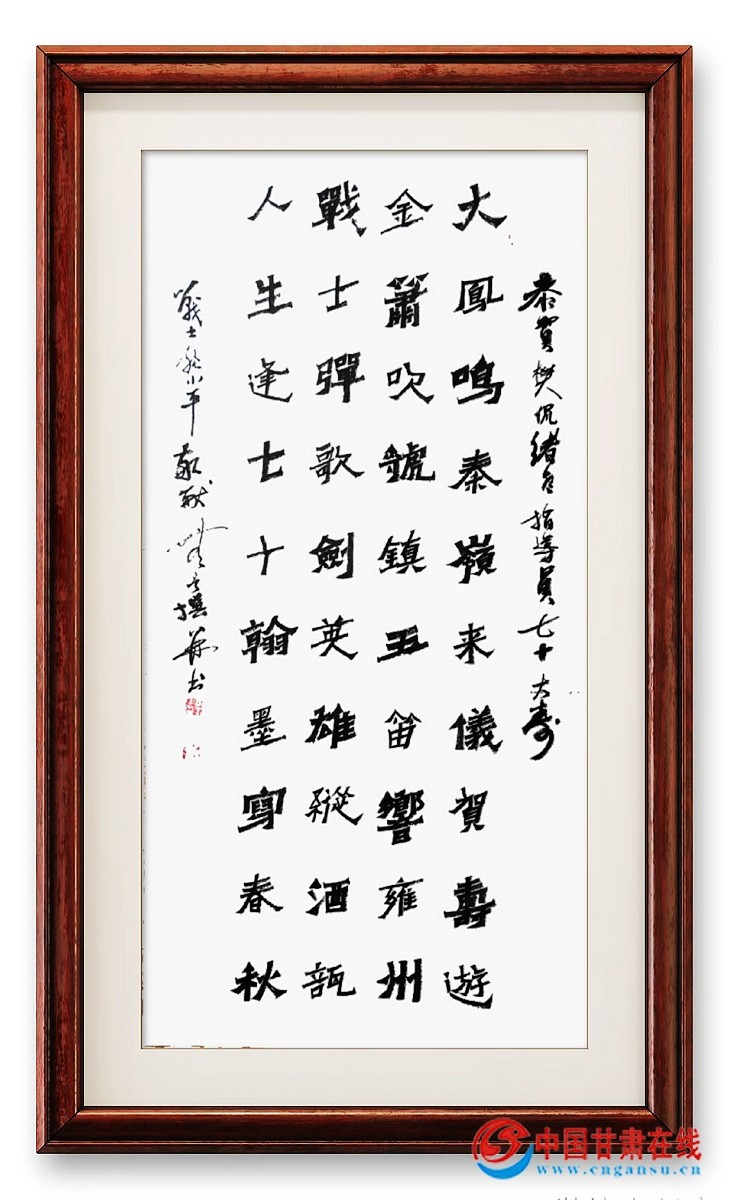 恭賀樊侃緒台指導員七十大壽
大鳳鳴秦嶺来儀賀壽遊
金簫吹虢鎮玉笛響雍州
戰士彈歌劍英雄縱酒瓿
人生逢七十翰墨寫春秋
戰士 小平敬献 撰并书
中国甘肃在线
www.cngansu.cn